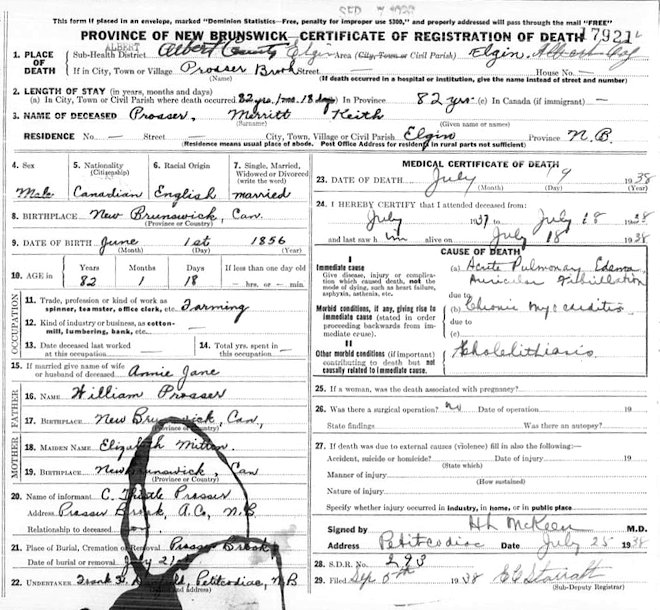 SEP 7 1938
This form if placed in an envelope, marked "Dominion Statistics—Free, penalty for improper use $300," and properly addressed will pass through the mail "FREE"
PROVINCE OF NEW BRUNSWICK—CERTIFICATE OF REGISTRATION OF DEATH 17921
1. PLACE OF DEATH
ALBERT
Sub-Health District Albert County Elgin Area (City, Town or Civil Parish) Elgin, Albert Co
If in City, Town or Village Prosser Brook Street — House No.—
(Name) (If death occurred in a hospital or institution, give the name instead of street and number)
2. LENGTH OF STAY (in years, months and days)
(a) In City, Town or Civil Parish where death occurred 82 yrs. 1 mo. 18 days In Province 82 yrs. (c) In Canada (if immigrant) —
3. NAME OF DECEASED Prosser, Merritt Keith
(Surname) (Given name or names)
RESIDENCE No. — Street — City, Town, Village or Civil Parish Elgin Province N.B.
(Residence means usual place of abode. Post Office Address for residents in rural parts not sufficient)
4. Sex
5. Nationality (Citizenship)
6. Racial Origin
7. Single, Married, Widowed or Divorced (write the word)
Male Canadian English married
8. BIRTHPLACE New Brunswick, Can.
(Province or Country)
9. DATE OF BIRTH June 1st 1856
(Month) (Day) (Year)
10. AGE in Years Months Days If less than one day
82 1 18 — hrs. or — min.
OCCUPATION
11. Trade, profession or kind of work as spinner, teamster, office clerk, etc. Farming
12. Kind of industry or business, as cotton-mill, lumbering, bank, etc.
13. Date deceased last worked at this occupation
14. Total yrs. spent in this occupation
15. If married give name of wife or husband of deceased Annie Jane
FATHER
16. Name William Prosser
17. Birthplace New Brunswick, Can,
(Province or Country)
MOTHER
18. Maiden Name Elizabeth Mitton.
19. Birthplace New Brunswick, Can
(Province or Country)
20. Name of informant C. Thistle Prosser
Address Prosser Brook, A.Co, N.B.
Relationship to deceased son.
21. Place of Burial, Cremation or Removal Prosser Brook
Date of burial or removal July 21
22. UNDERTAKER Frank Petitcodiac, N.B
MEDICAL CERTIFICATE OF DEATH
23. DATE OF DEATH July 19 1938
(Month) (Day) (Year)
24. I HEREBY CERTIFY that I attended deceased from:
July 1937 to July 18 1938
and last saw h im alive on July 18 1938
CAUSE OF DEATH
I
Immediate cause
Give disease, injury or complication which caused death, not the mode of dying, such as heart failure, asphyxia, asthenia, etc.
(a) Acute Pulmonary Edema
Auricular Fibrillation
due to
Morbid conditions, if any, giving rise to immediate cause (stated in order proceeding backwards from immediate cause).
(b) Chronic Myocarditis
due to
(c)
II
Other morbid conditions (if important) contributing to death but not causally related to immediate cause.
Cholelithiasis.
25. If a woman, was the death associated with pregnancy?
26. Was there a surgical operation? no Date of operation 19
State findings Was there an autopsy?
27. If death was due to external causes (violence) fill in also the following:—
Accident, suicide or homicide? Date of injury 19
(State which)
Manner of injury
(How sustained)
Nature of injury
Specify whether injury occurred in industry, in home, or in public place
Signed by H L McKeen M.D.
Address Petitcodiac Date July 25 1938
28. S.D.R. No. 293
29. Filed Sep 5th 1938
(Sub-Deputy Registrar)